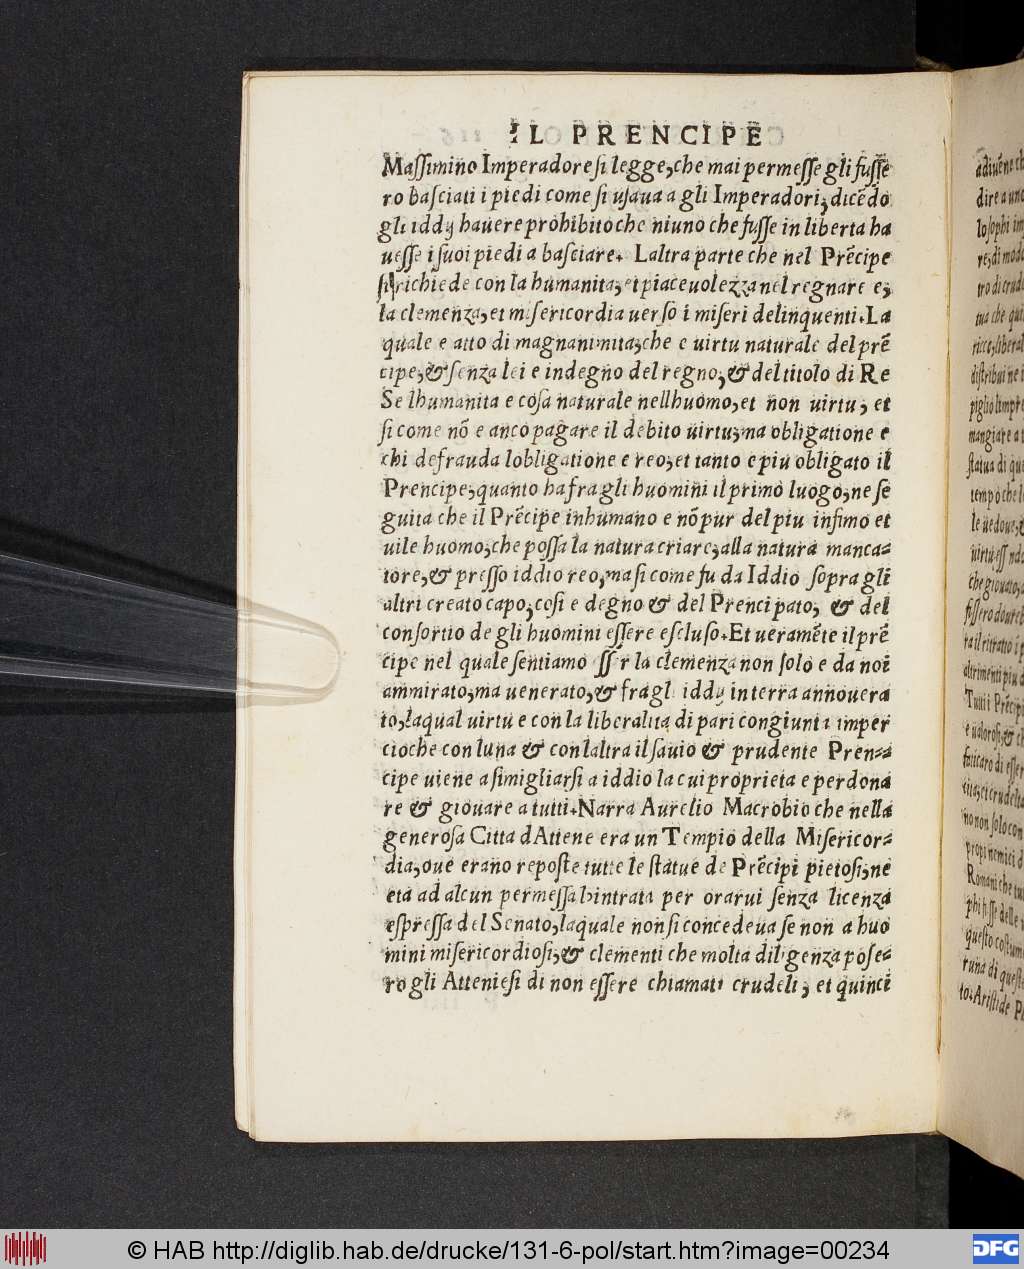 IL PRENCIPE
Maſſimino Imperadore ſi legge, che mai permeſſe gli fuſſe
ro baſciati i piedi come ſi uſaua a gli Imperadori, dicēdo
gli iddij hauere prohibito che niuno che fuſſe in liberta ha
ueſſe i ſuoi piedi a baſciare. Laltra parte che nel Prēcipe
ſi richiede con la humanita, et piaceuolezza nel regnare e,
la clemenza, et miſericordia uerſo i miſeri delinquenti. La
quale e atto di magnanimita, che e uirtu naturale del prē
cipe, & ſenza lei e indegno del regno, & del titolo di Re
Se lhumanita e coſa naturale nellhuomo, et non uirtu, et
ſi come nō e anco pagare il debito uirtu, ma obligatione e
chi defrauda lobligatione e reo, et tanto e piu obligato il
Prencipe, quanto ha fra gli huomini il primo luogo, ne ſe
guita che il Prēcipe inhumano e nō pur del piu infimo et
uile huomo, che poſſa la natura criare, alla natura manca-
tore, & preſſo iddio reo, ma ſi come fu da Iddio ſopra gli
altri creato capo, coſi e degno & del Prencipato, & del
conſortio de gli huomini eſſere eſcluſo. Et ueramēte il prē
cipe nel quale ſentiamo eſſer la clemenza non ſolo e da noi
ammirato, ma uenerato, & fra gli iddij in terra annouera
to, laqual uirtu e con la liberalita di pari congiunta imper
cioche con luna & con laltra il ſauio & prudente Pren-
cipe uiene a ſimigliarſi a iddio la cui proprieta e perdona
re & giouare a tutti. Narra Aurelio Macrobio che nella
generoſa Citta dAttene era un Tempio della Miſericor-
dia, oue erano repoſte tutte le ſtatue de Prēcipi pietoſi, ne
era ad alcun permeſſa lintrata per orarui ſenza licenza
eſpreſſa del Senato, laquale non ſi concedeua ſe non a huo
mini miſericordioſi, & clementi che molta diligenza poſe-
ro gli Attenieſi di non eſſere chiamati crudeli, et quinci
© HAB http://diglib.hab.de/drucke/131-6-pol/start.htm?image=00234
DFG